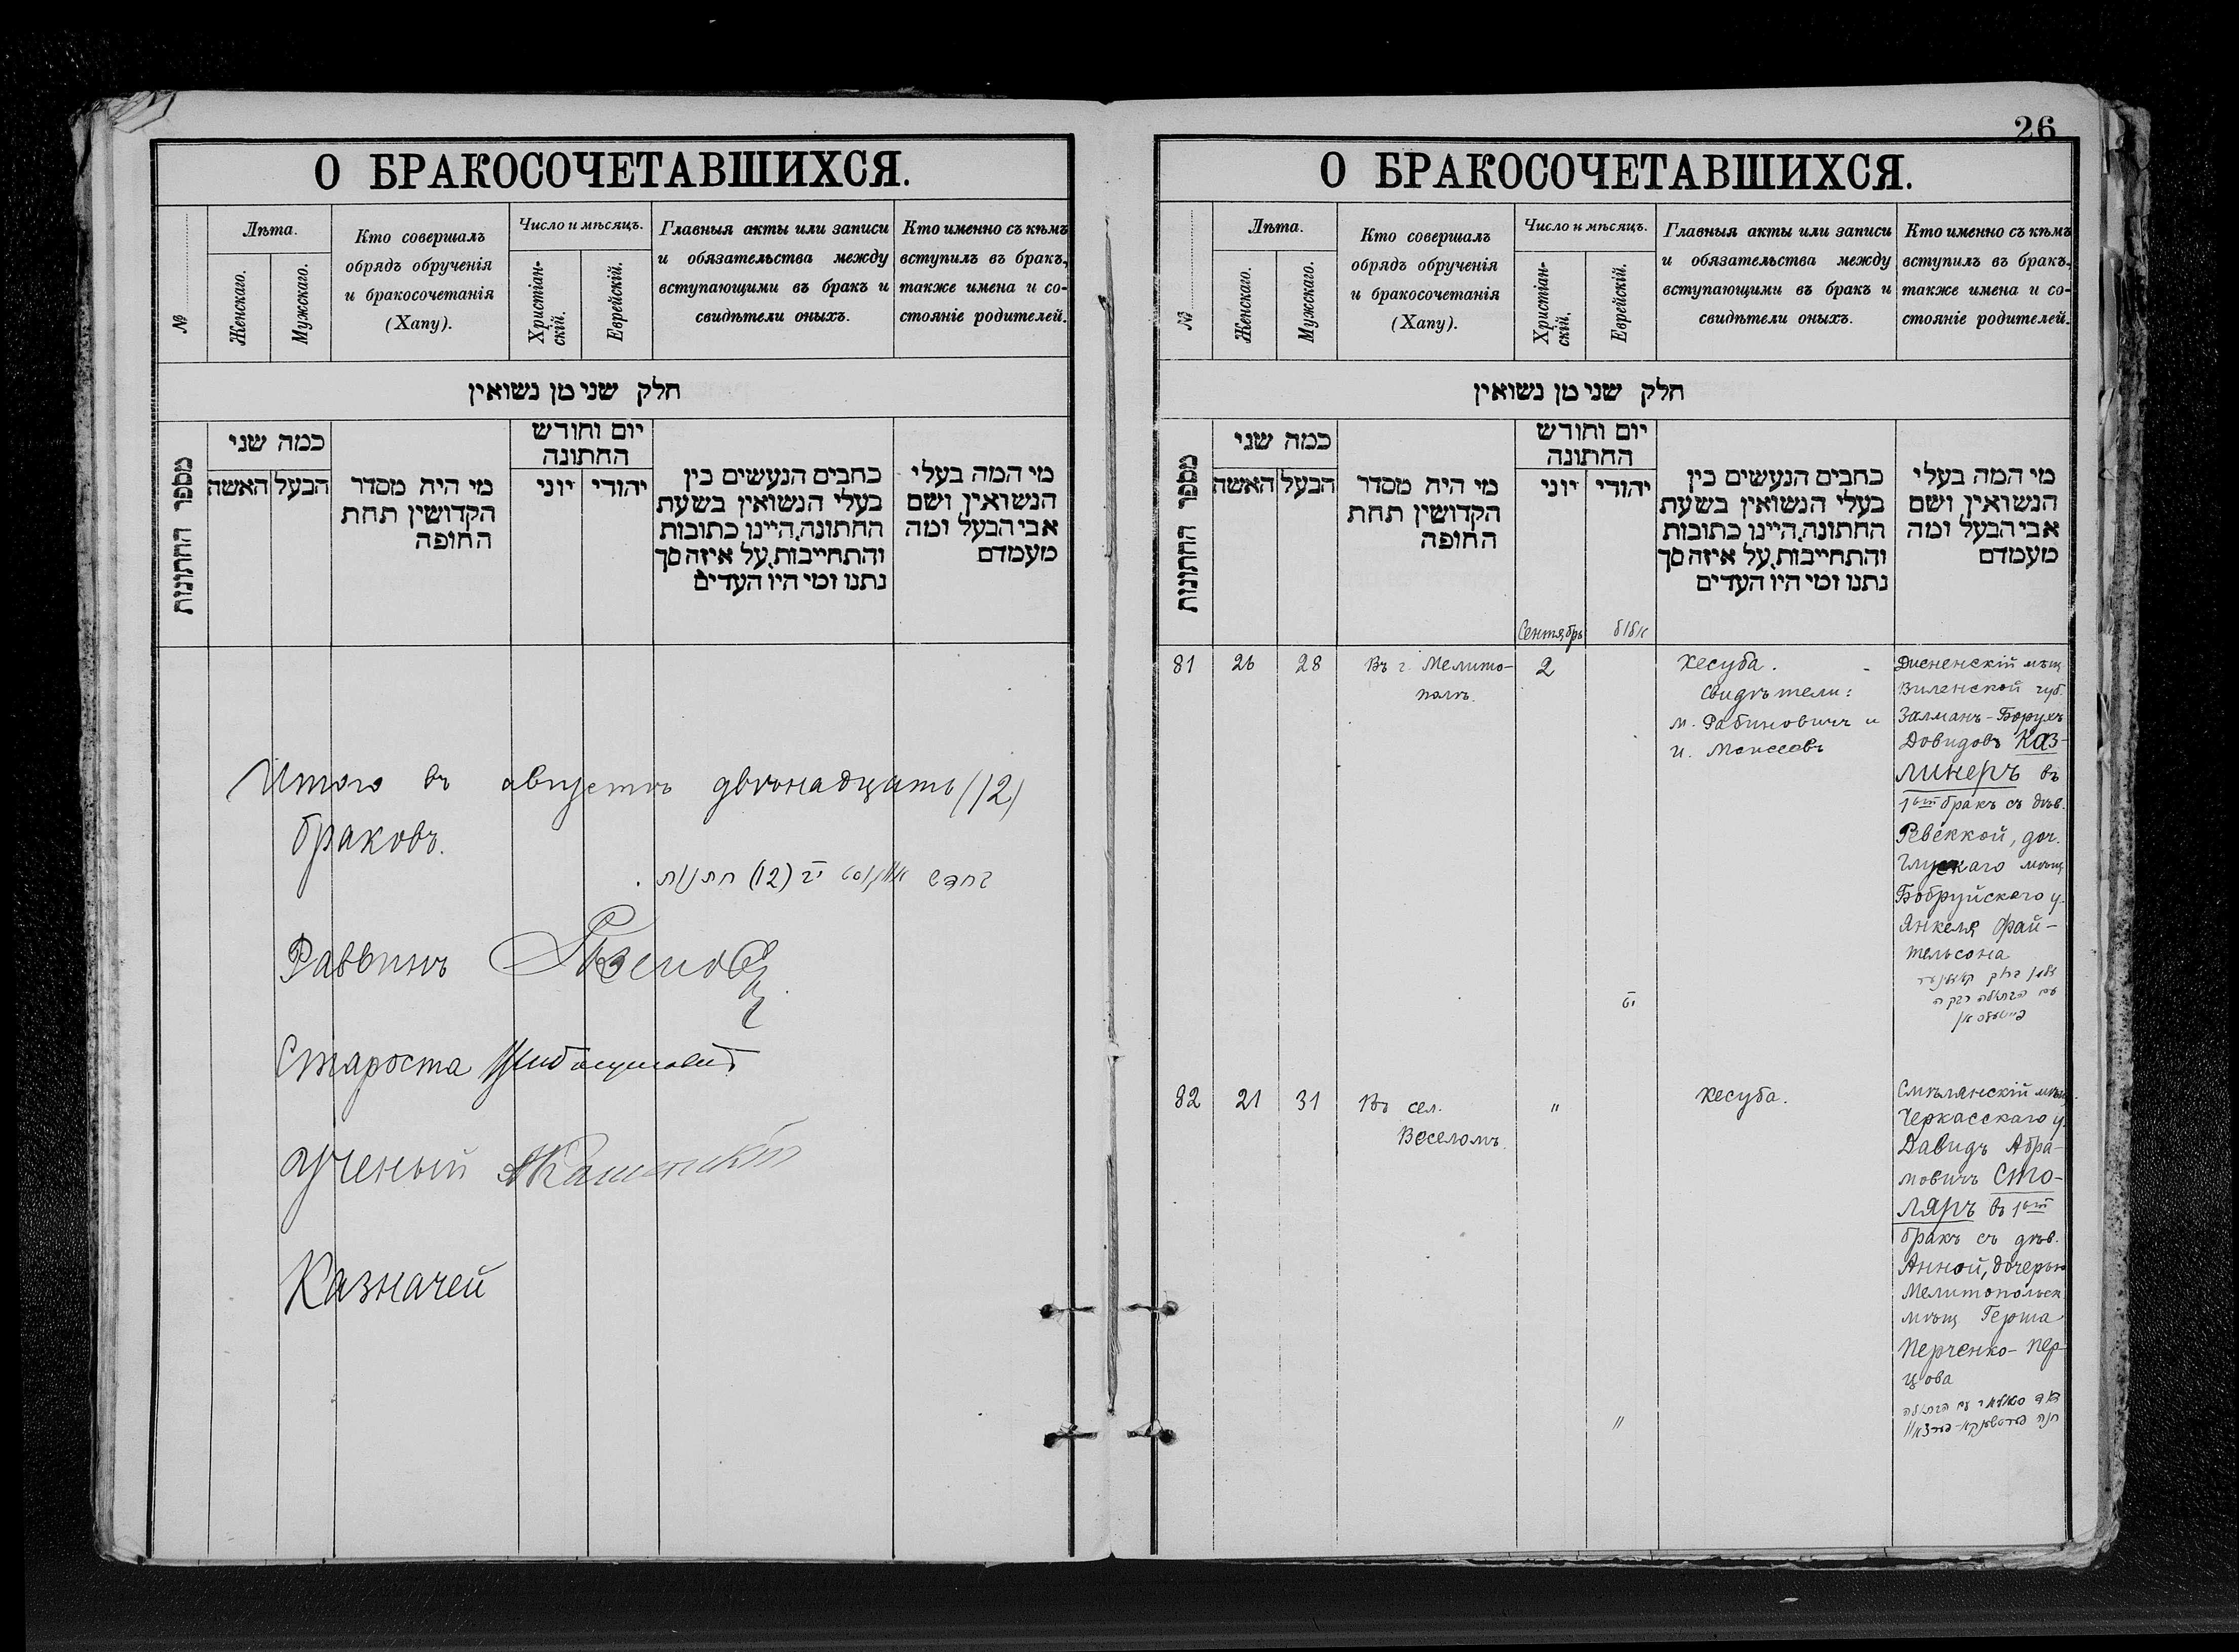 О БРАКОСОЧЕТАВШИХСЯ.
№
Лѣта.
Женскаго.
Мужскаго.
Кто совершалъ
обрядъ обрученія
и бракосочетанія
(Хапу).
Число и мѣсяцъ.
Христіан-
скій.
Еврейскій.
Главныя акты или записи
и обязательства между
вступающими въ бракъ и
свидѣтели оныхъ.
Кто именно съ кѣмъ
вступилъ въ бракъ,
также имена и со-
стояніе родителей.
חלק שני מן נשואין
מספר החתונות
כמה שני
האשה
הבעל
מי היה מסדר
הקדושין תחת
החופה
יום וחודש
החתונה
יוני
יהודי
כתבים הנעשים בין
בעלי הנשואין בשעת
החתונה, היינו כתובות
והתחייבות, על איזה סך
נתנו ומי היו העדים
מי המה בעלי
הנשואין ושם
אבי הבעל ומה
מעמדם
Итого въ августѣ двѣнадцать (12)
браковъ.
בחדש אויגוסט י"ב (12) חתונות.
Раввинъ
Староста
Ученый
Казначей
26
О БРАКОСОЧЕТАВШИХСЯ.
№
Лѣта.
Женскаго.
Мужскаго.
Кто совершалъ
обрядъ обрученія
и бракосочетанія
(Хапу).
Число и мѣсяцъ.
Христіан-
скій.
Еврейскій.
Главныя акты или записи
и обязательства между
вступающими въ бракъ и
свидѣтели оныхъ.
Кто именно съ кѣмъ
вступилъ въ бракъ,
также имена и со-
стояніе родителей.
חלק שני מן נשואין
מספר החתונות
כמה שני
האשה
הבעל
מי היה מסדר
הקדושין תחת
החופה
יום וחודש
החתונה
יוני
יהודי
כתבים הנעשים בין
בעלי הנשואין בשעת
החתונה, היינו כתובות
והתחייבות, על איזה סך
נתנו ומי היו העדים
מי המה בעלי
הנשואין ושם
אבי הבעל ומה
מעמדם
Сентябрь
אלול
81
26
28
Въ г. Мелито-
полѣ.
2
Кесуба.
Свидѣтели:
М. Рабиновичъ и
И. Моисеевъ
Дисненскій мѣщ.
Виленской губ.
Залманъ-Борухъ
Довидовъ Каз-
линеръ въ
1ый бракъ съ дѣв.
Ревеккой, доч.
Глускаго мѣщ.
Бобруйскаго у.
Янкеля Фай-
тельсона
זלמן ברוך קאזלינער
עם הבתולה רבקה
פייטעלסאן
82
21
31
Въ сел.
Веселомъ.
"
Кесуба.
Смѣлянскій мѣщ.
Черкасскаго у.
Давидъ Абра-
мовичъ Сто-
ляръ въ 1ый
бракъ съ дѣв.
Анной, дочерью
Мелитопольск.
мѣщ. Герша
Перченко-Пер-
цова
דוד סטאליאר עם הבתולה
חנה
"